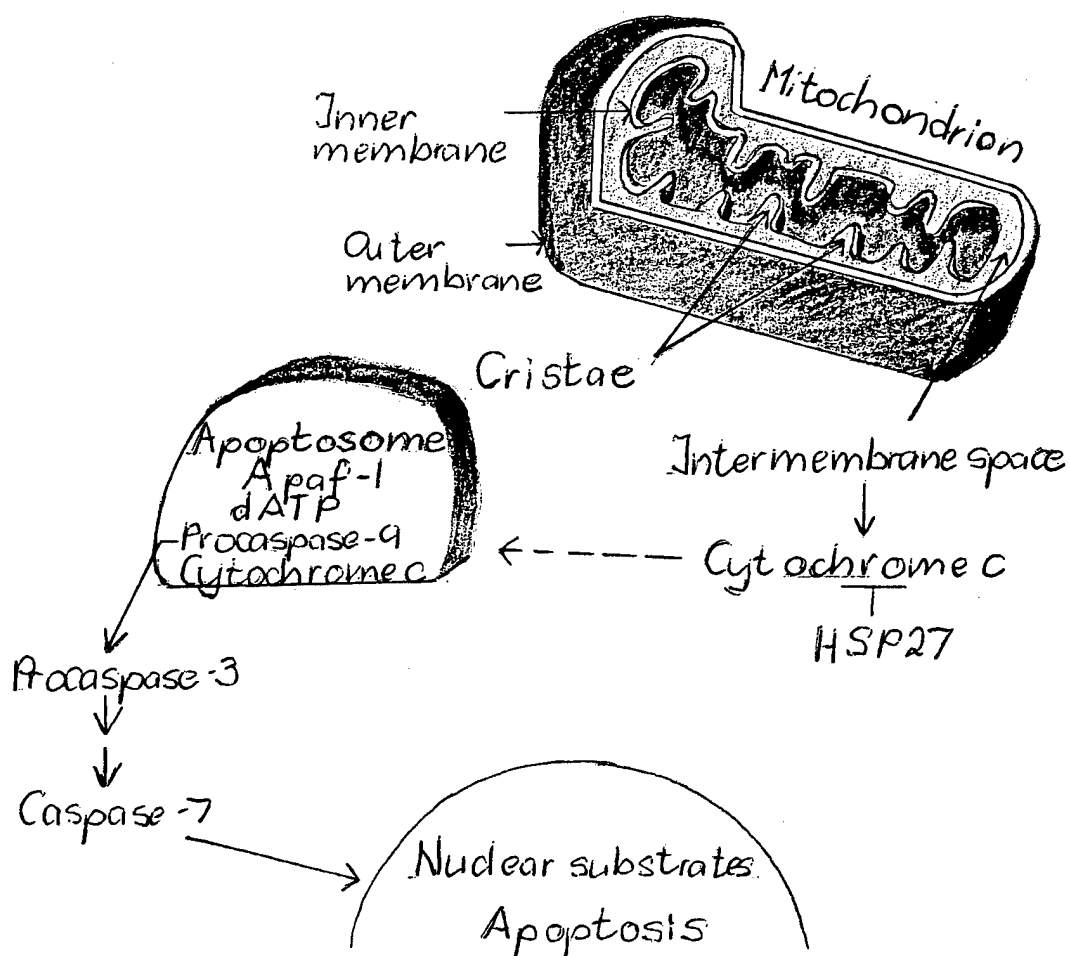 Mitochondrion
Inner
membrane
Outer
membrane
Cristae
Intermembrane space
Cytochrome c
HSP27
Apoptosome
Apaf-1
dATP
Procaspase-9
Cytochrome c
Procaspase-3
Caspase-7
Nuclear substrates
Apoptosis